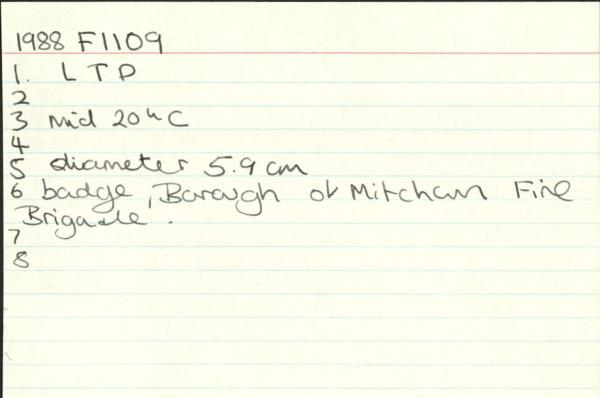 1988 F1109
1. LTP
2
3 Mid 20th C
4
5 diameter 5.9 cm
6 badge, Borough of Mitcham Fire
Brigade.
7
8